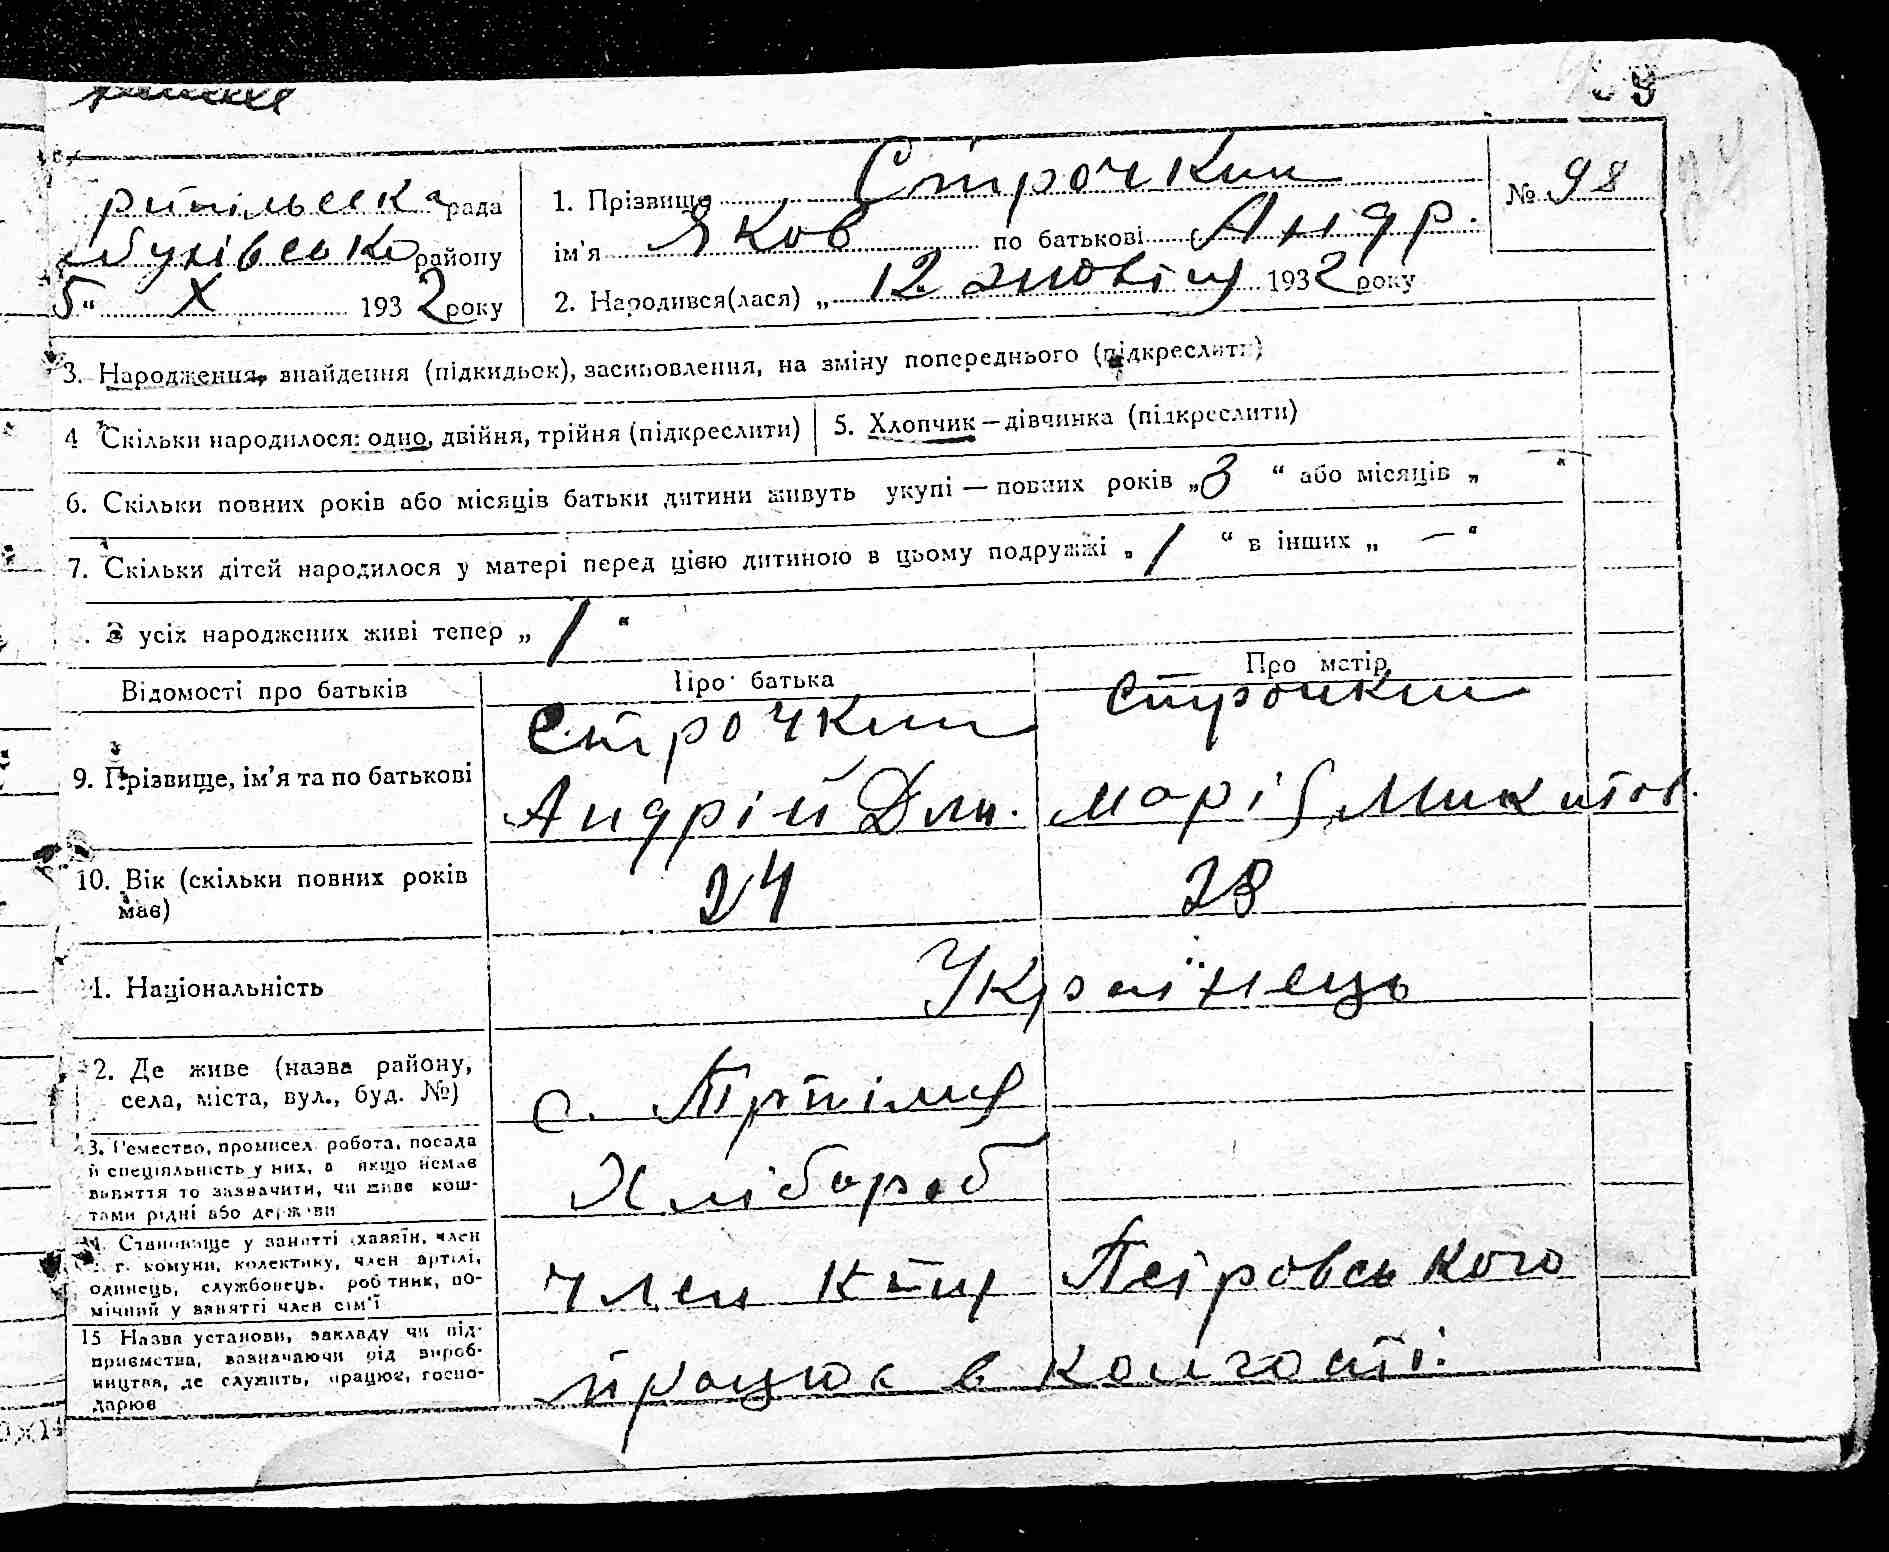 рипільська рада
бухівсько району
5 “ X 1932 року
1. Прізвище Строчкин
№ 98
ім'я Яков по батькові Андр.
2. Народився(лася) „ 12 жовтня 1932 року
3. Народження, знайдення (підкидьок), засиновлення, на зміну попереднього (підкреслити)
4 Скільки народилося: одно, двійня, трійня (підкреслити)
5. Хлопчик — дівчинка (підкреслити)
6. Скільки повних років або місяців батьки дитини живуть укупі — повних років „ 3 “ або місяців „ — “
7. Скільки дітей народилося у матері перед цією дитиною в цьому подружжі „ 1 “ в інших „ — “
З усіх народжених живі тепер „ 1 “
Відомості про батьків
Про батька
Про матір
9. Прізвище, ім'я та по батькові
Строчкин
Андрій Дми.
Строчкин
Марія Микитов.
10. Вік (скільки повних років
має)
24
28
1. Національність
Українець
2. Де живе (назва району,
села, міста, вул., буд. №)
с. Трипілля
3. Ремество, промисел, робота, посада
й спеціяльність у них, а якщо немає
заняття то зазначити, чи живе кош-
тами рідні або держави
Хлібороб
Становище у занятті (хазяїн, член
с. г. комуни, колективу, член артілі,
одинець, службовець, робітник, по-
мічний у занятті член сім'ї
член к-пу Петровського
15 Назва установи, закладу чи під-
приємства, зазначаючи рід вироб-
ництва, де служить, працює, госпо-
дарює
працює в колгоспі.